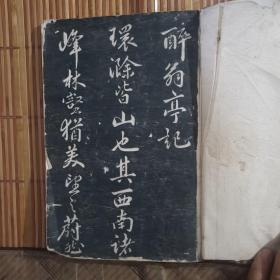 醉翁亭記
環滁皆山也其西南諸
峰林壑猶美望之蔚然